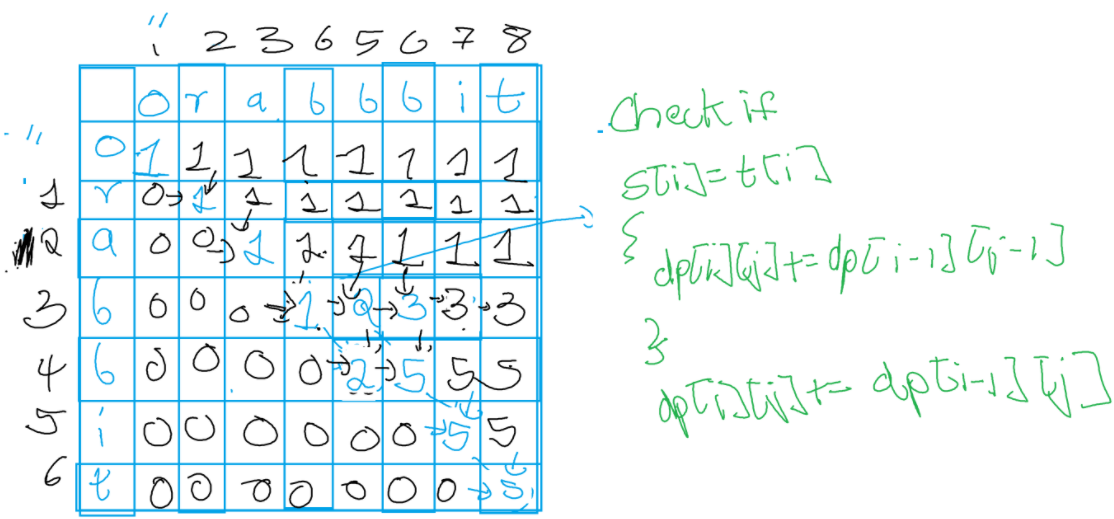 " 1 2 3 6 5 6 7 8
0 r a b b b i t
" 0 1 1 1 1 1 1 1 1
1 r 0 1 1 1 1 1 1 1
2 a 0 0 1 1 1 1 1 1
3 b 0 0 0 1 2 3 3 3
4 b 0 0 0 0 2 5 5 5
5 i 0 0 0 0 0 0 5 5
6 t 0 0 0 0 0 0 0 5
Check if
s[i]=t[i]
{
dp[i][j]+=dp[i-1][j-1]
}
dp[i][j]+= dp[i-1][j]